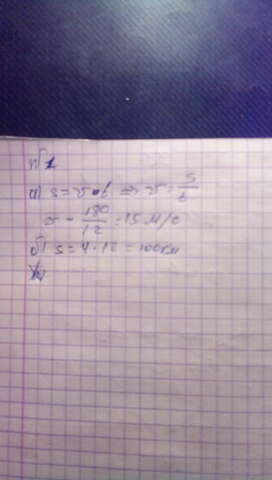 №1
а) s = v · t ⇒ v = s/t
v = 180/12 = 15 м/с
б) s = 4 · 12 = 100 км